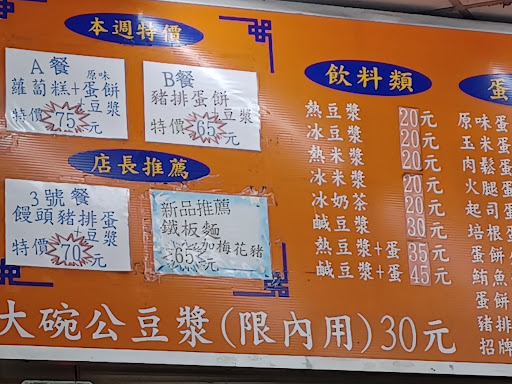 本週特價
A餐
蘿蔔糕+原味蛋餅
+豆漿
特價75元
B餐
豬排蛋餅
+豆漿
特價65元
店長推薦
3號餐
饅頭豬排蛋
+豆漿
特價70元
新品推薦
鐵板麵
加梅花豬
65元
飲料類
熱豆漿 20元
冰豆漿 20元
熱米漿 20元
冰米漿 20元
冰奶茶 20元
鹹豆漿 30元
熱豆漿+蛋 35元
鹹豆漿+蛋 45元
蛋
原味蛋
玉米蛋
肉鬆蛋
火腿蛋
起司蛋
培根蛋
蛋餅
鮪魚
蛋餅
豬排
招牌
大碗公豆漿(限內用)30元